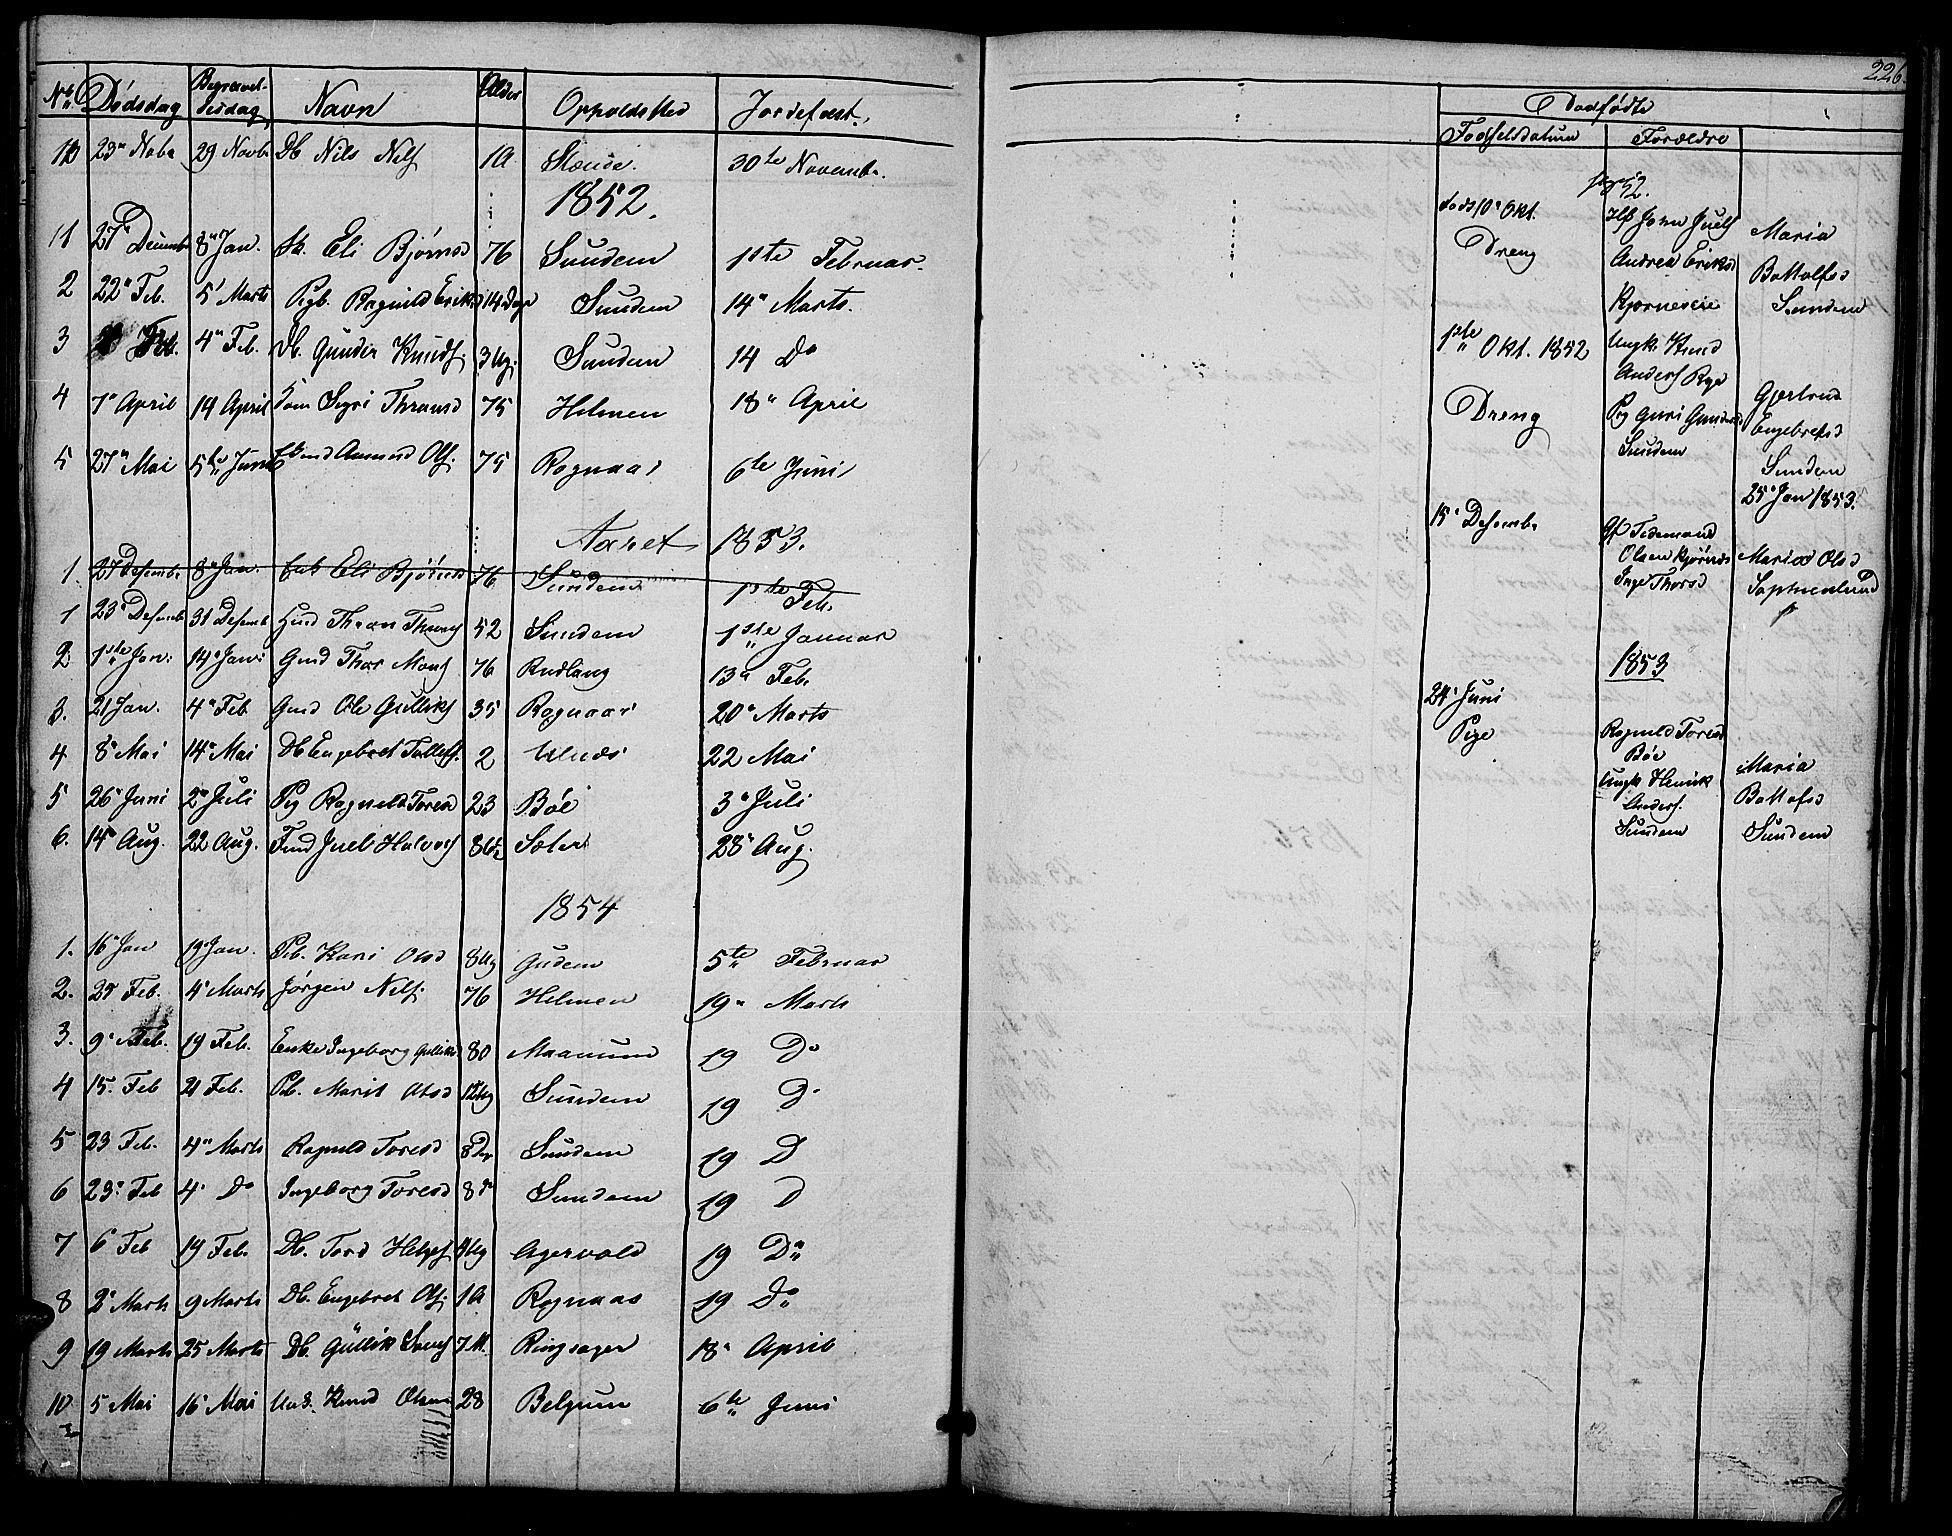 226.
No. Dødsdag Begravelsesdag Navn Alder Opholdssted Jordefæst.
10 23" Novb 29 Novb Db Nils Nils. 1 A 30te Novemb.
1852.
11 27" Decemb 8" Jan. Eli Bjørnsd 76 Sundem 1ste Februar.
2 22" Feb. 5' Marts Pigb. Ragnild Eriksd 14 Dage Sundem 14" Marts.
3 Feb. 4" Feb. Db. Gunder Knuds. 3 Ug. Sundem 14 Do
4 7" April 14 April Kone Sigri Thronsd 75 Helmen 18" April
5 27" Mai 5te Juni Amund Ols. 75 Rognaas 6te Juni
Aaret 1853.
1. 27 Desemb 8" Jan. Enk Eli Bjørnsd 76 Sundem 1ste Feb.
1 23" Desemb 31 Desemb Husmd Thron Throns 52 Sundem 1ste Januar
2 1ste Jan. 14" Jan. Gmd Thor Mons. 76 Rudlang 13" Feb.
3. 21 Jan. 4" Feb Gmd Ole Gulliks 35 Rognaas 20" Marts
4 8" Mai 14" Mai Db Engebret Tollefs. 2 Ulnæs 22 Mai
5 26" Juni 2" Juli Pig Ragnild Toresd 23 Bøe 3" Juli
6. 14" Aug. 22 Aug. Juel Halvors 86 Sæter 28" Aug.
1854
1. 16" Jan 19" Jan. Pb. Kari Olsd 8 Ug Gudem 5te Februar
2. 25 Feb. 4" Marts Jørgen Nils. 76 Helmen 19" Marts
3. 9" Feb. 19 Feb. Enke Ingeborg Gulliksd 80 Maanum 19 Do
4 15 Feb 21 Feb. Pb. Marit Olsd 12 Ug Sundem 19 D
5 23 Feb. 4" Marts Ragnild Toresd 8 Dg Sundem 19 D
6 23" Feb 4" Do Ingeborg Toresd 8 do Sundem 19 D
7 6" Feb 19 Feb. Db. Tord Helges. 9 Ug Agervold 19 Do
8 2" Marts 9 Marts Db. Engebret Ols. 1 A Rognaas 19 Do
9 19 Marts 25 Marts Db. Gullik 7 M. Ringsager 18" April
10 5 Mai 16" Mai Knud Olsen 28 Belgum 6te Juni
Dødfødte
Fødselsdatum Forældre
52.
født 10" Okt. John Juels Maria
Dreng Andrea Eriksd Bottolfsd
Bjørneseie Sundem
1ste Okt. 1852 Ungk. Knud
Anders. Rye Gjertrud
Dreng Pig Guri Gundersd Engebretsd
Sundem Sundem
25" Jan 1853.
15" Desemb Gf Tidemand
Olsen Bjørnes Maria Olsd
Inge Thorsd Sophienlund
1853
24" Juni
Pige Ragnild Toresd
Bøe Maria
Ungk Henrik Bottolfsd
Anders.
Sundem Sundem